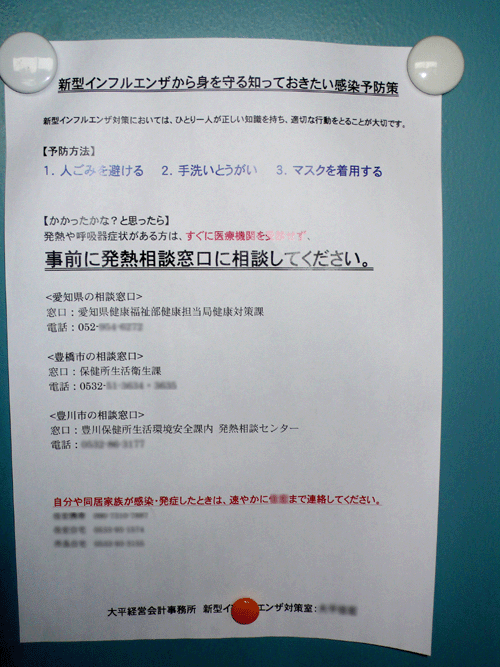 新型インフルエンザから身を守る知っておきたい感染予防策
新型インフルエンザ対策においては、ひとり一人が正しい知識を持ち、適切な行動をとることが大切です。
【予防方法】
1. 人ごみを避ける 2. 手洗いとうがい 3. マスクを着用する
【かかったかな？と思ったら】
発熱や呼吸器症状がある方は、すぐに医療機関を受診せず、
事前に発熱相談窓口に相談してください。
<愛知県の相談窓口>
窓口：愛知県健康福祉部健康担当局健康対策課
電話：052-
<豊橋市の相談窓口>
窓口：保健所生活衛生課
電話：0532-
<豊川市の相談窓口>
窓口：豊川保健所生活環境安全課内 発熱相談センター
電話：
自分や同居家族が感染・発症したときは、速やかに まで連絡してください。
大平経営会計事務所 新型インフルエンザ対策室：